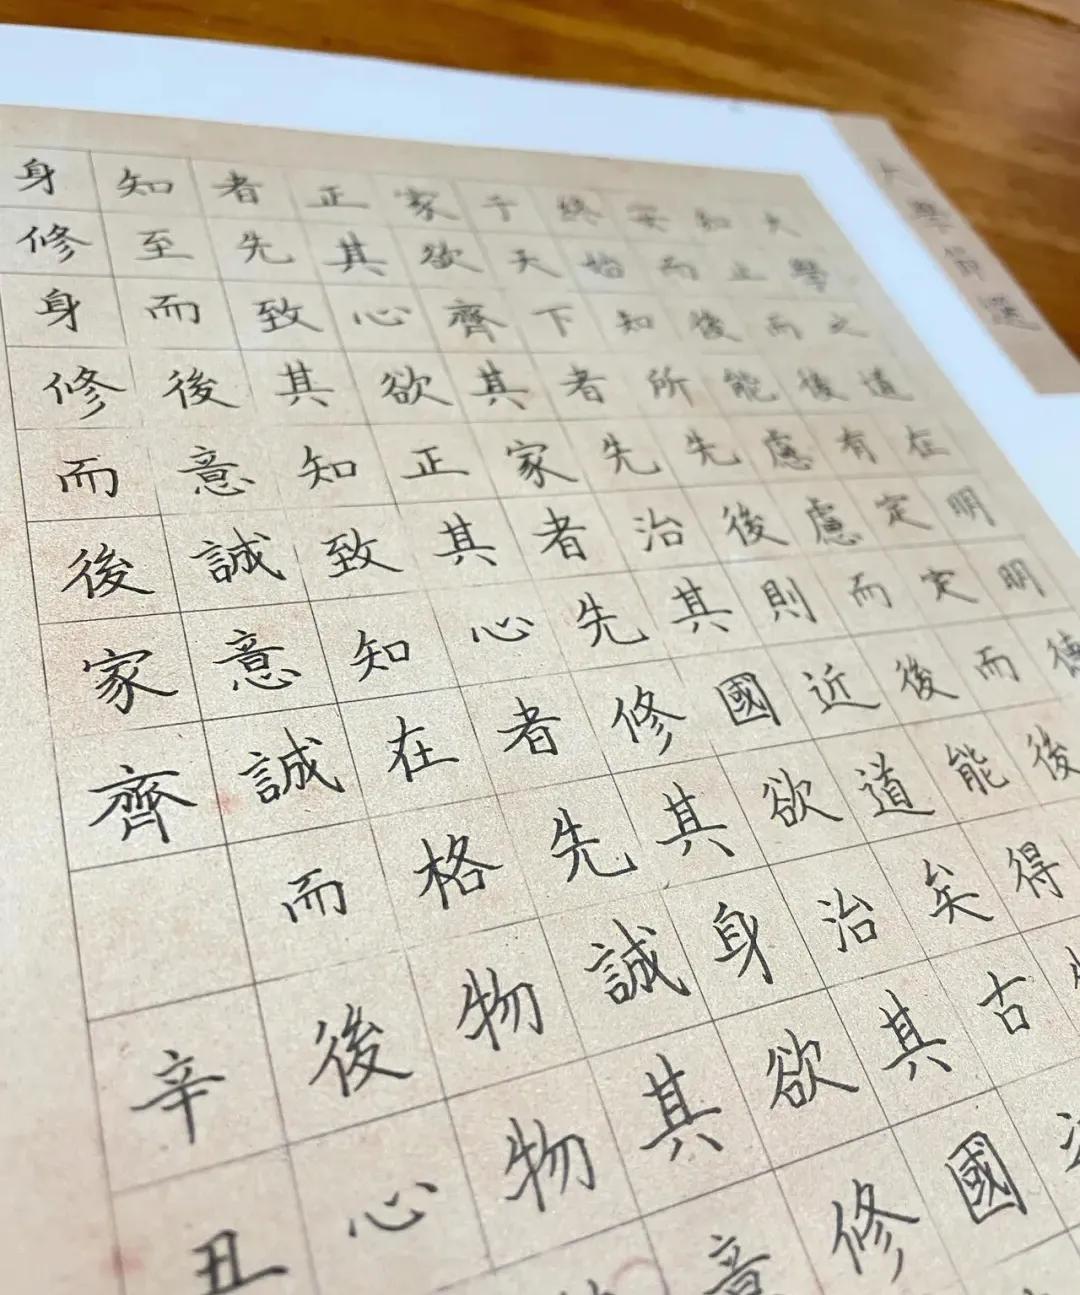 大學節選
大學之道在明明德
知止而後有定定而後
安而後能慮慮而後能得
終始知所先後則近道矣古
于天下者先治其國欲治其國
家欲齊其家者先修其身欲修
正其心欲正其心者先誠其意
者先致其知致知在格物物
知至而後意誠意誠而後心
身修身修而後家齊
辛丑